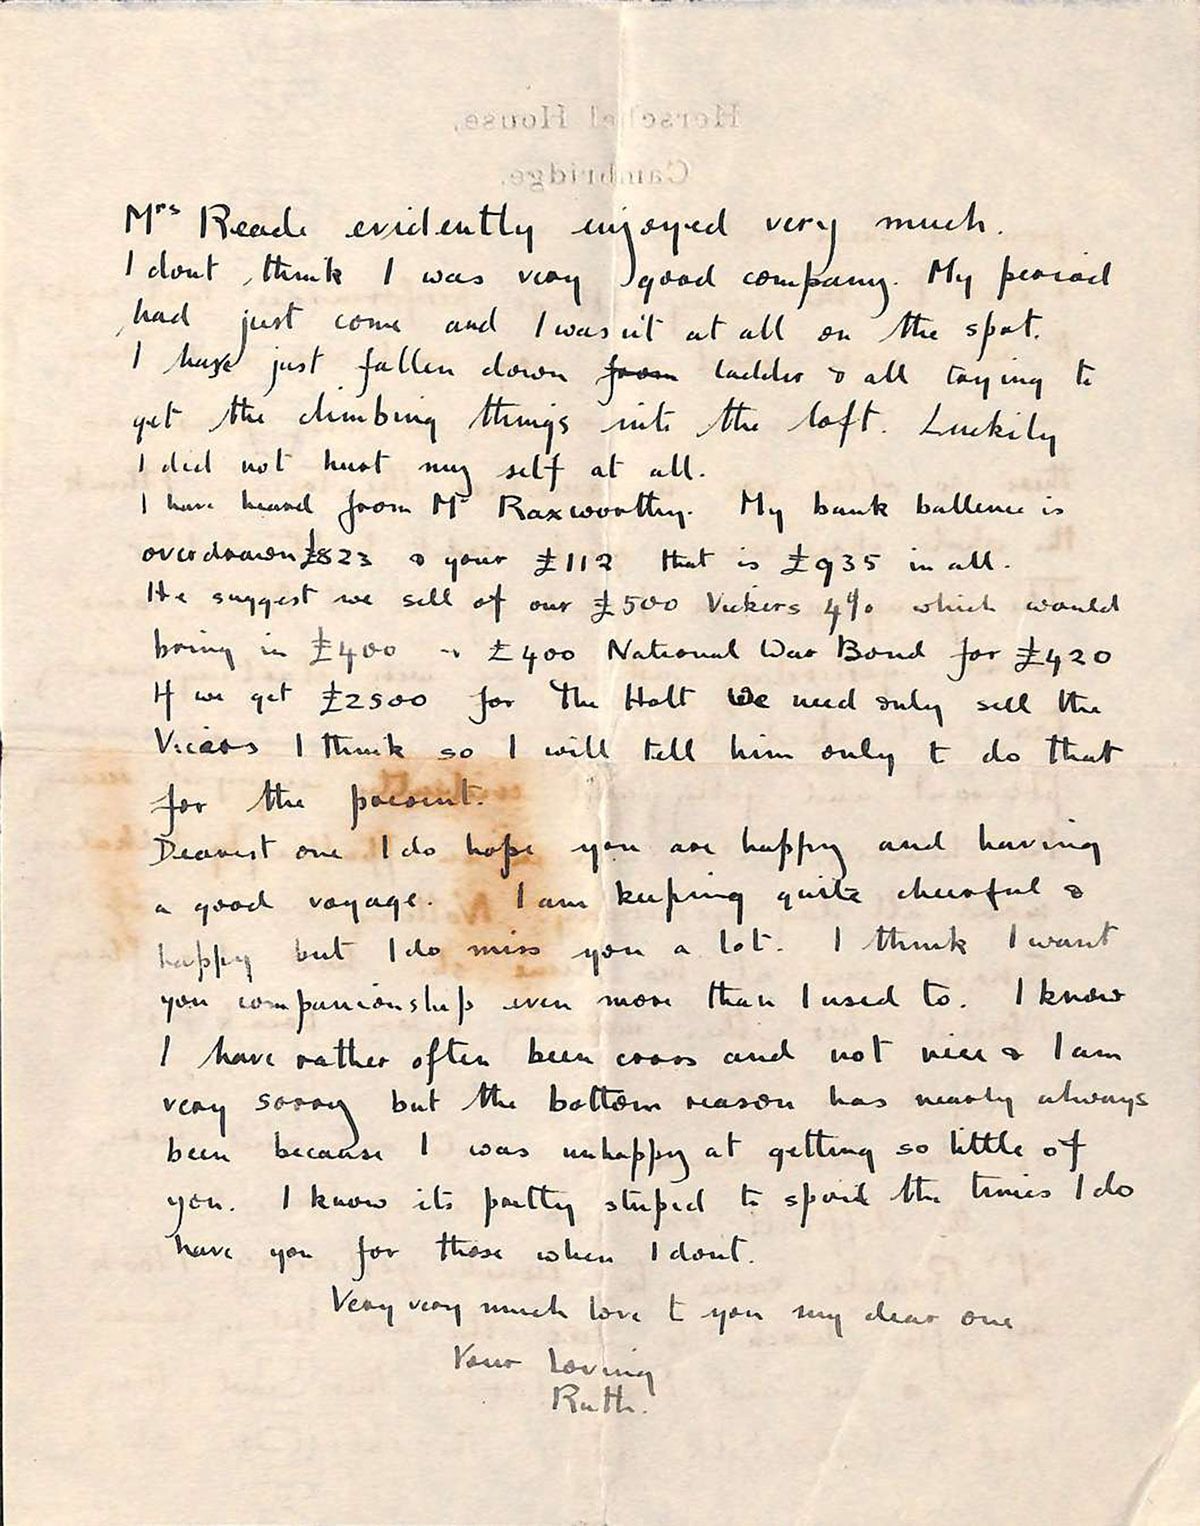 Herschel House,
Cambridge.
Mrs Reade evidently enjoyed very much.
I dont think I was very good company. My period
had just come and I wasn't at all on the spot.
I have just fallen down from ladder & all trying to
get the climbing things into the loft. Luckily
I did not hurt my self at all.
I have heard from Mr Raxworthy. My bank ballence is
overdrawn £823 & your £112 that is £935 in all.
He suggest we sell of our £500 Vickers 4% which would
bring in £400 & £400 National War Bond for £420
If we get £2500 for The Holt we need only sell the
Vicars I think so I will tell him only to do that
for the present.
Dearest one I do hope you are happy and having
a good voyage. I am keeping quite cheerful &
happy but I do miss you a lot. I think I want
you companionship even more than I used to. I know
I have rather often been cross and not nice & I am
very sorry but the bottom reason has nearly always
been because I was unhappy at getting so little of
you. I know its pretty stupid to spoil the times I do
have you for those when I dont.
Very very much love to you my dear one
Your loving
Ruth.